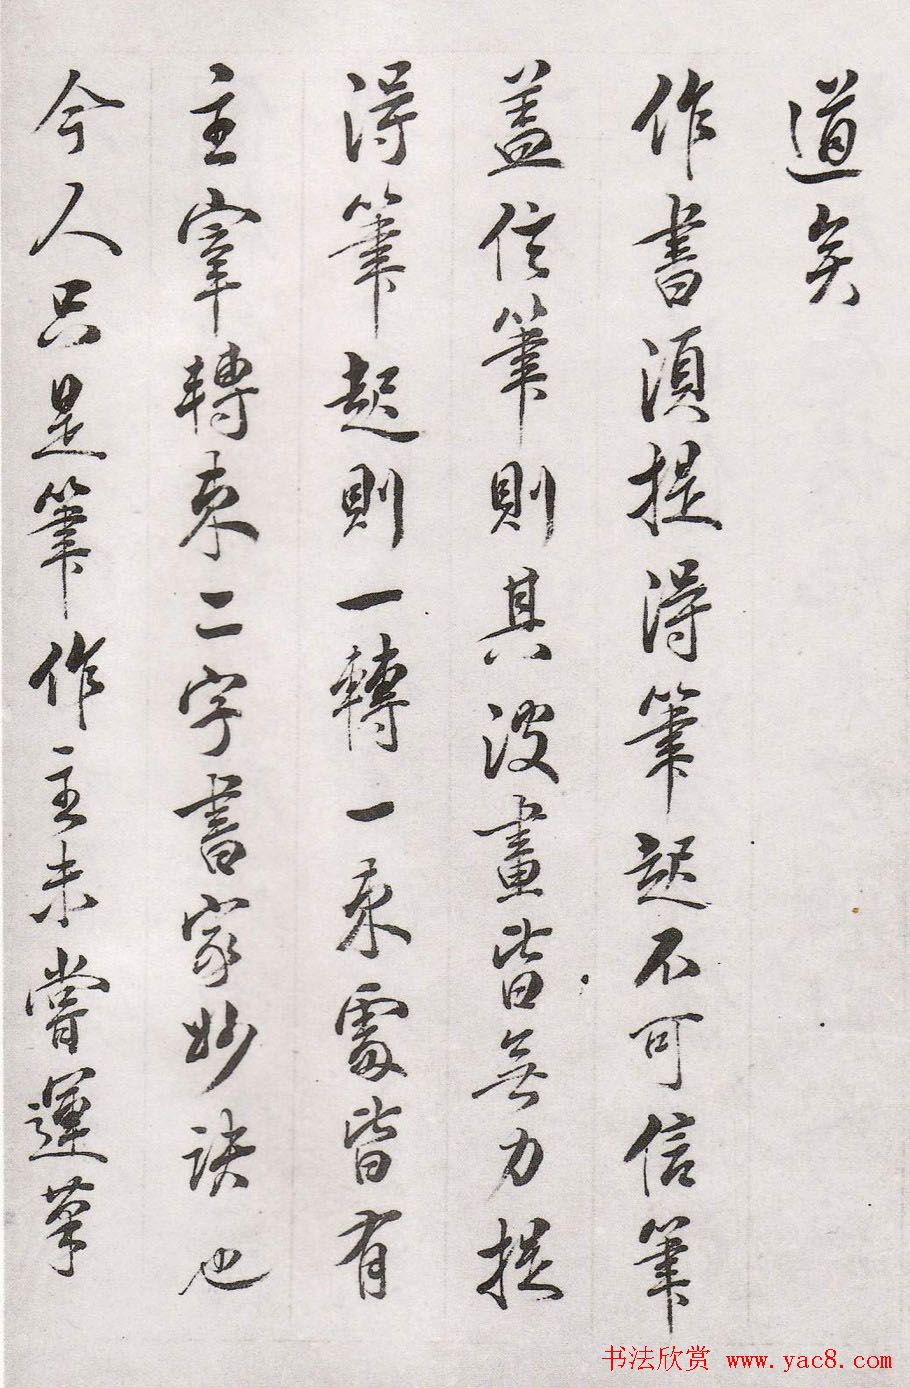 道矣
作書須提得筆起不可信筆
盖信筆則其波畫皆無力提
得筆起則一轉一束處皆有
主宰轉束二字書家妙訣也
今人只是筆作主未嘗運筆
书法欣赏 www.yac8.com